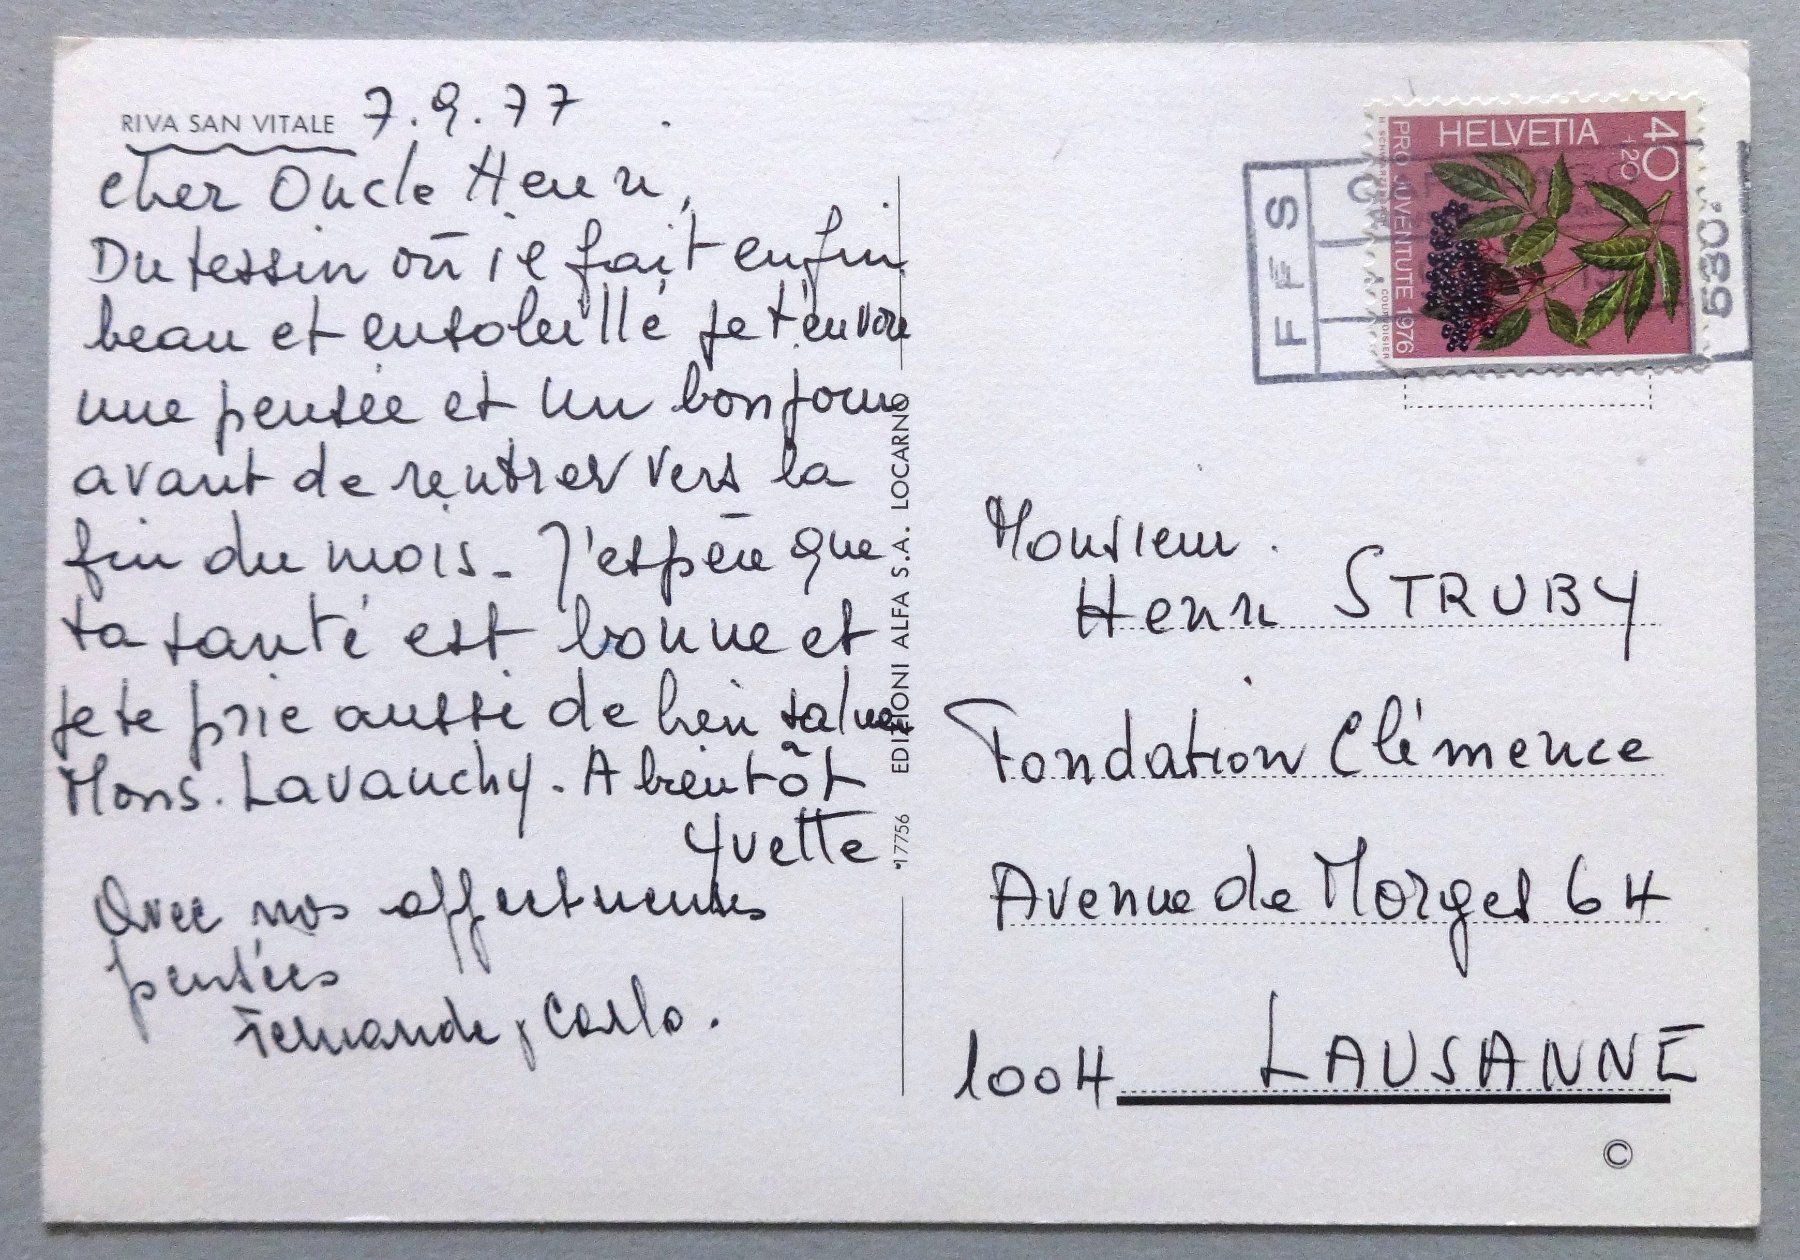 RIVA SAN VITALE 7.9.77
Cher Oncle Henri,
Du tessin où il fait enfin
beau et ensoleillé je t'envoie
une pensée et un bonjour
avant de rentrer vers la
fin du mois - J'espère que
ta santé est bonne et
je te prie aussi de bien saluer
Mons. Lavanchy. A bientôt
Yvette
Avec nos affectueuses
pensées
Fernande, Carlo.
17756 EDIZIONI ALFA S.A. LOCARNO
HELVETIA
40
+20
PRO JUVENTUTE 1976
COURVOISIER
FFS
5380
Monsieur
Henri STRUBY
Fondation Clémence
Avenue de Morges 64
1004 LAUSANNE
©